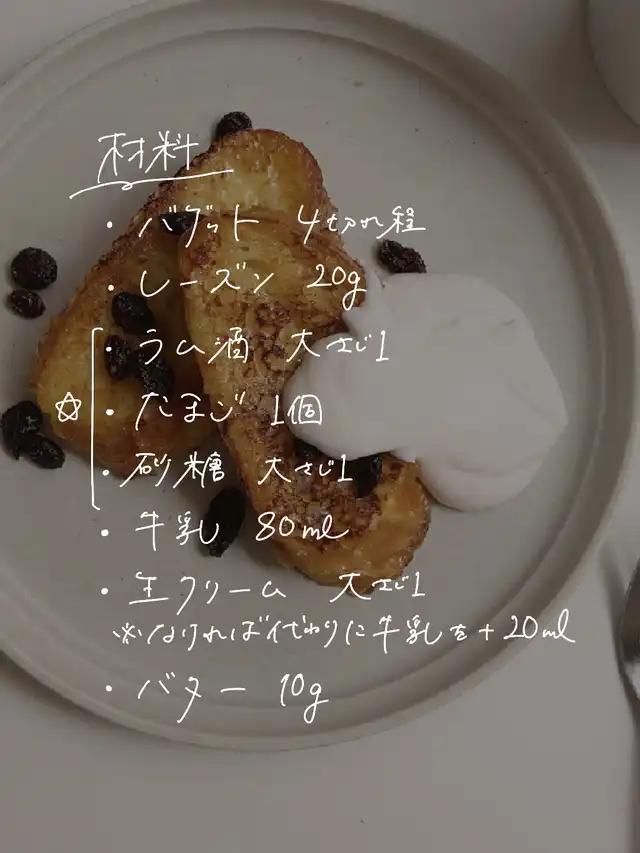 材料
・バゲット 4切れ程
・レーズン 20g
・ラム酒 大さじ1
☆・たまご 1個
・砂糖 大さじ1
・牛乳 80ml
・生クリーム 大さじ1
※なければ代わりに牛乳を+20ml
・バター 10g